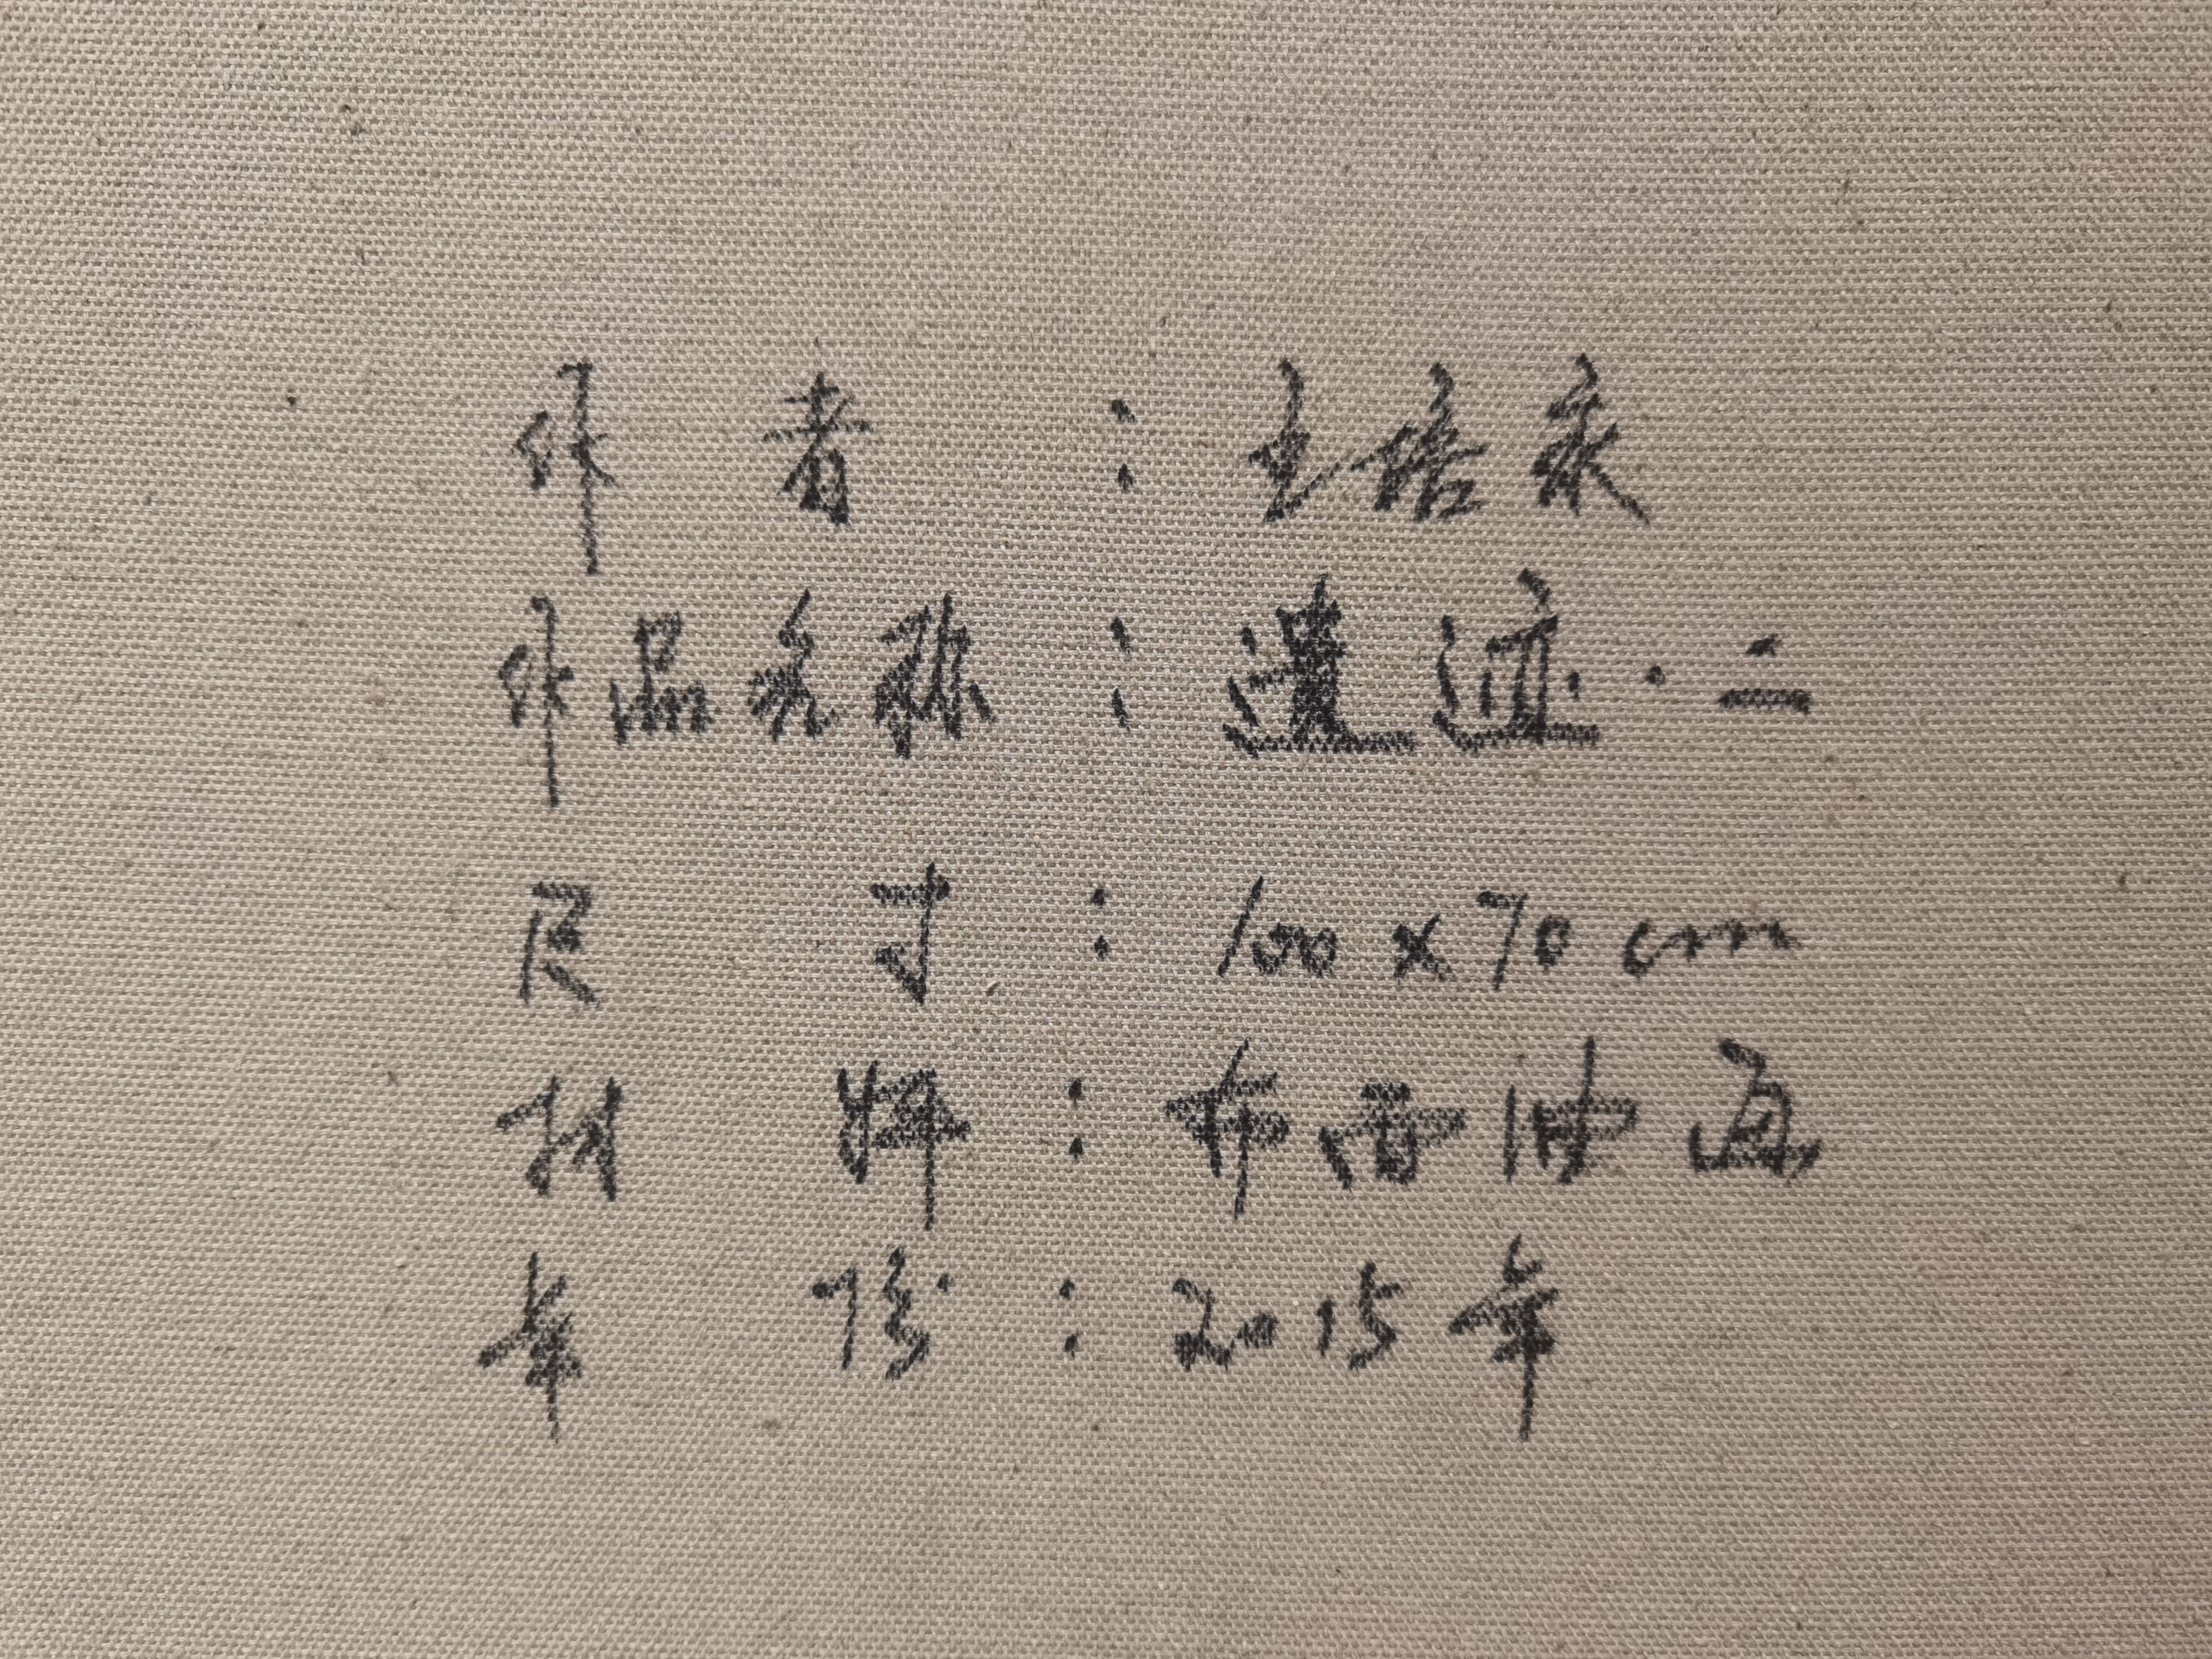 作 者 : 王培永
作品名称 : 遗迹·二
尺 寸 : 100 x 70 cm
材 料 : 布面油画
年 份 : 2015年